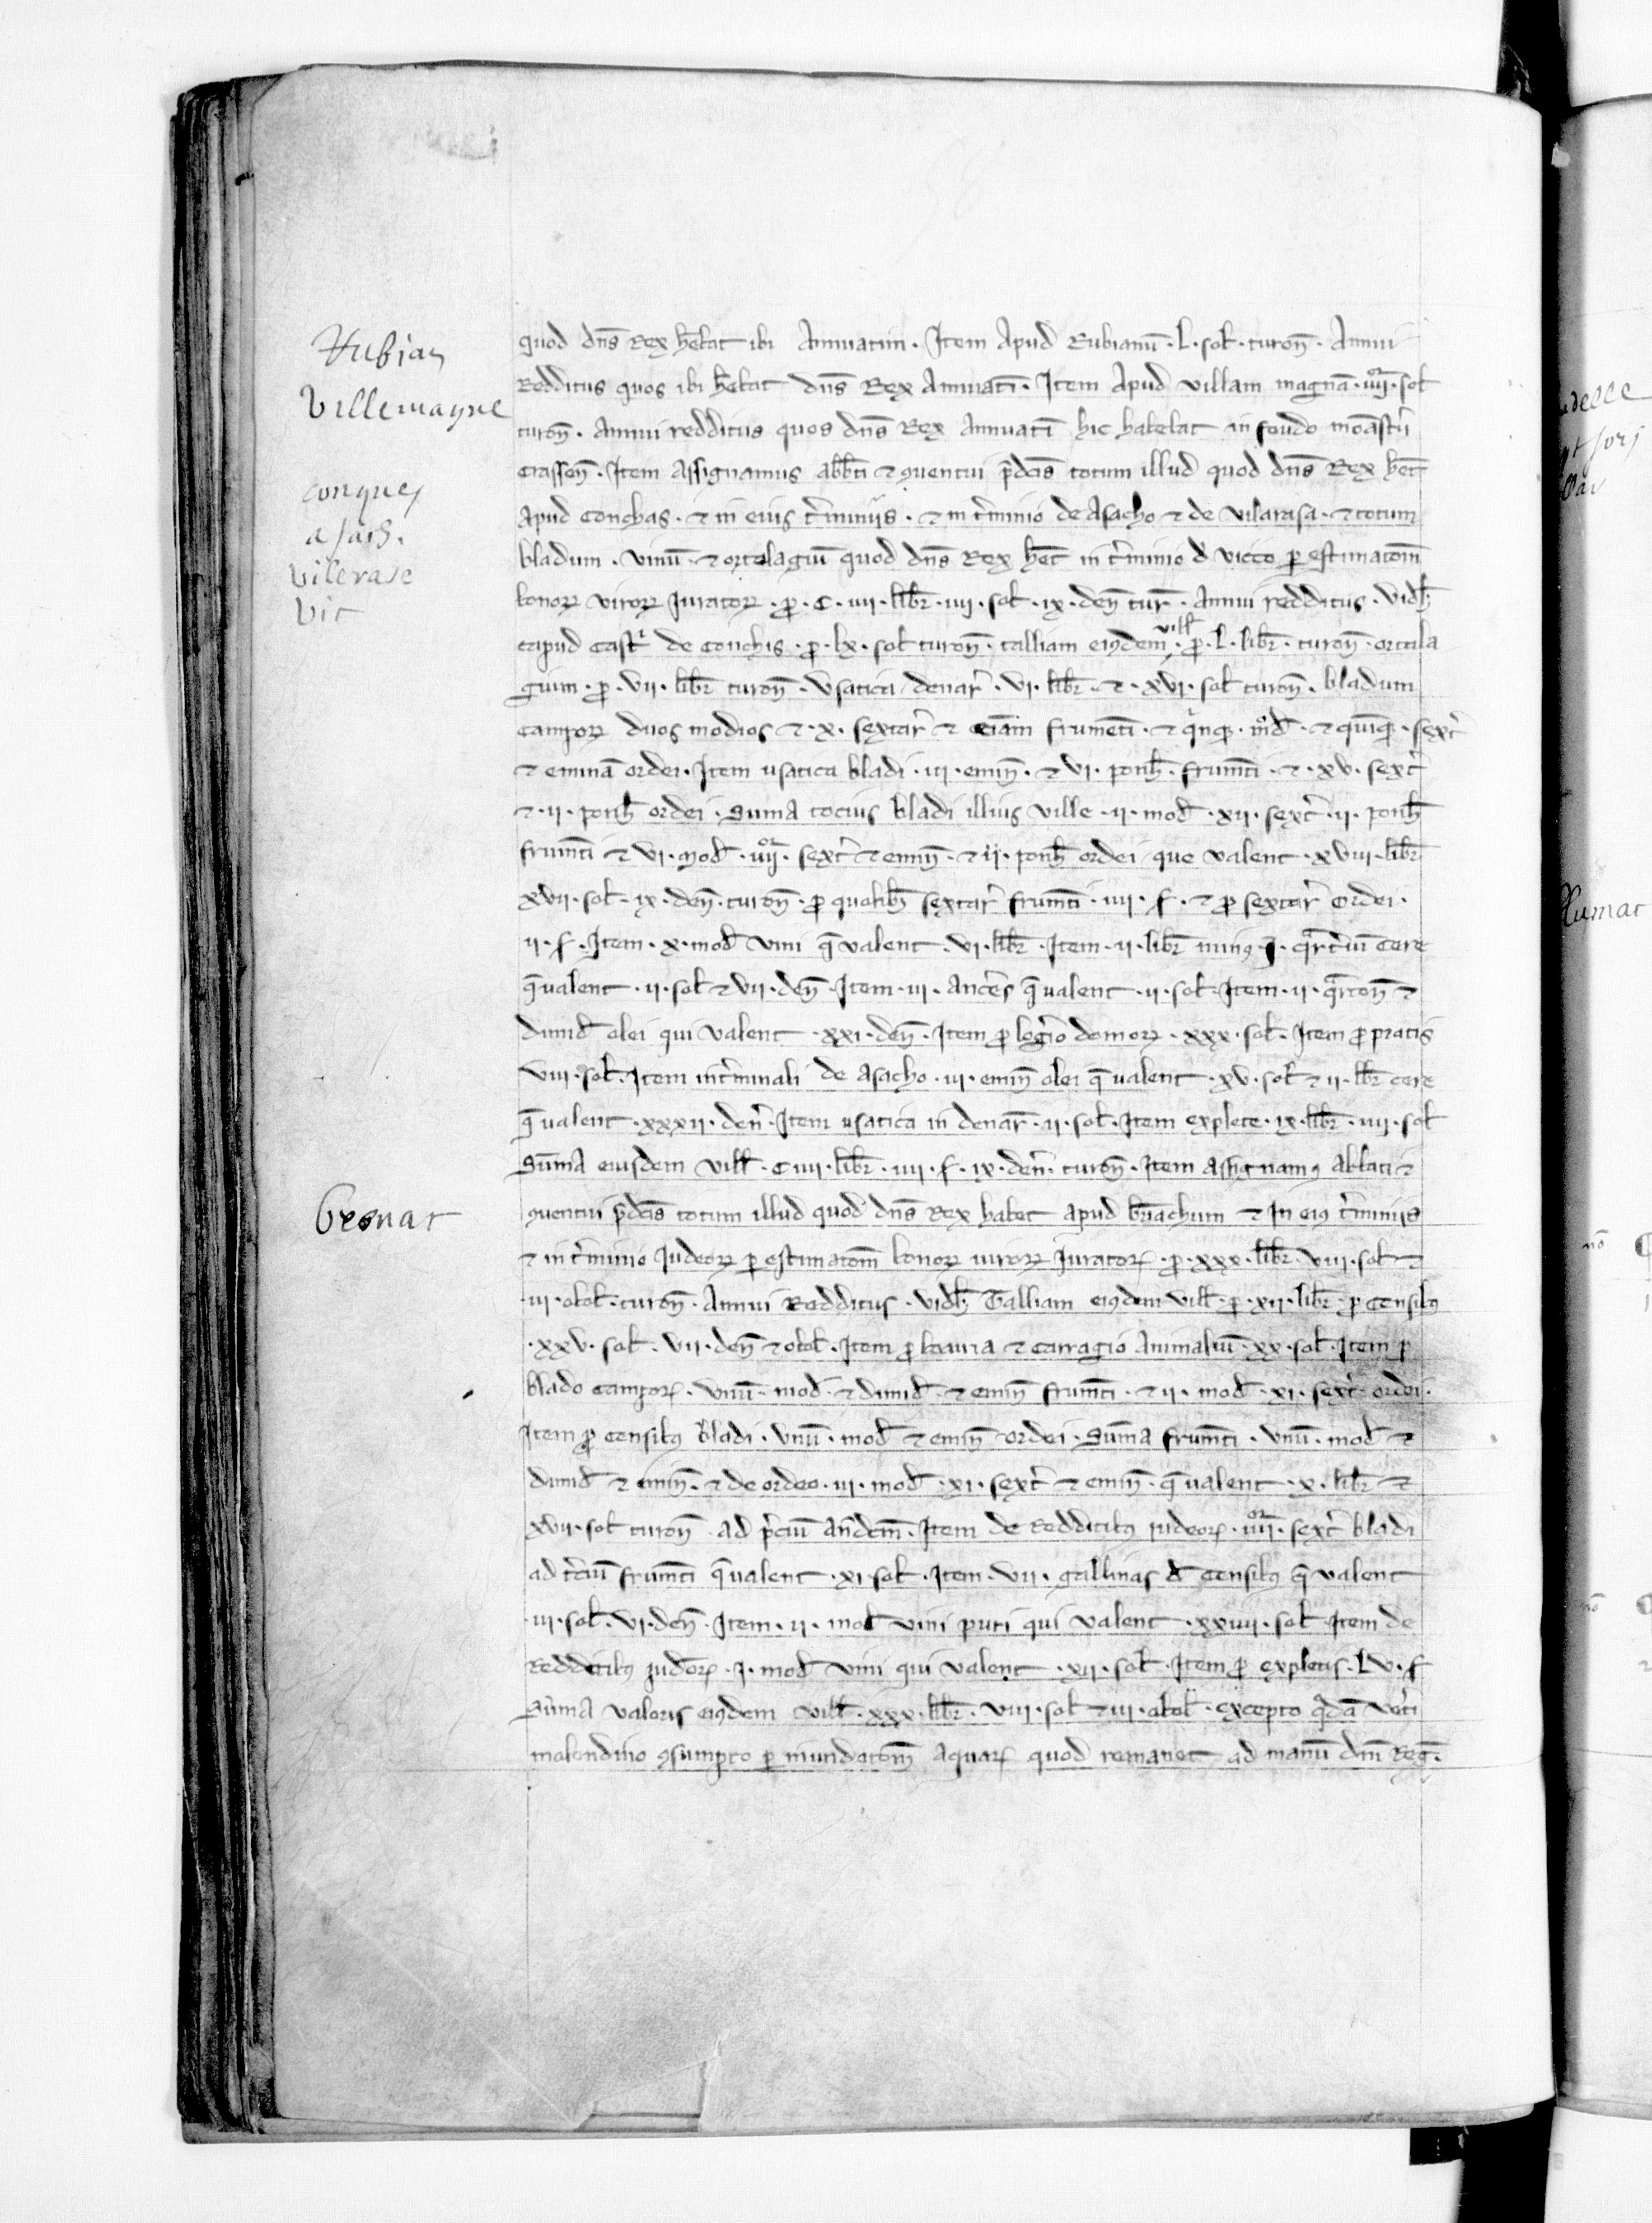 Rubian
Villemagne
conques
asach.
vilerase
vic
quod dns Rex hebat ibi Annuatim. Item Apud Rubianū .L. sol. turoñ. Annui
Redditus quos ibi hebat dns Rex Annuatī. Item Apud villam magnā .iiijor. sol
turoñ. Annui redditus quos dns Rex Annuatī hic habebat in feudo monastr̄i
Crasseñ. Item Assignamus abbti ⁊ ꝯuentui p̄dcis totum illud quod dns Rex het
Apud Conchas. ⁊ in eius t̄miniis. ⁊ in t̄minio de Asacho ⁊ de vilarasa. ⁊ totum
bladum. vinū. ⁊ ortolagiū quod dns Rex het in t̄minio d' vicco p estimatom̄
bonoꝝ viroꝝ Iuratoꝝ. p. C. iiij. libr̄. iiij. sol. ix. deñ tur̄. Annui redditus. vidlꝫ
caput Castr' de Conchis. p. lx. sol turoñ. talliam eiꝰdem vill. p. L. libr̄. turoñ. ortola
gium. p. vii. libr̄ turoñ. Vsatica denar̄. vi. libr̄. ⁊. xvi. sol turoñ. bladum
campoꝝ duos modios ⁊. x. sextar̄ ⁊ eiām frumenti. ⁊ q̄nqꝫ. mod̄. ⁊ quīqꝫ. sext̄
⁊ eminā ordei. Item usatica bladi. iii. emiñ. ⁊ vi. ponh̄. frumti. ⁊. xv. sext̄
⁊. ii. ponh̄ ordei. Suma tocius bladi illius ville. ii. mod̄. xii. sext̄. ii. ponh̄
frumti ⁊ vi. mod̄. iiijor. sext̄ ⁊ emiñ. ⁊ ii. ponh̄ ordei que valent. xviii. libr̄
xvii. sol. ix. deñ. turoñ. p qualibꝫ sextar̄ frumti. iiij. s. ⁊ p sextar̄ Ordei.
ii. s. Item. x. mod̄ vini q̄ valent. vi. libr̄. Item. ii. libr̄ minꝰ. I. qr̄t̄iū Cere
q̄ valent. ii. sol ⁊ vii. deñ. Item. iii. Ancer̄s q̄ valent. ii. sol. Item. ii. q̄rtoñ ⁊
dimid̄ olei qui valent. xxi. deñ. Item p logr̄io domoꝝ. xxx. sol. Item p pratis
viii. sol. Item in t̄minali de Asacho. iii. emiñ olei q̄ valent. xv. sol ⁊ ii. lbr̄ cere
q̄ valent. xxxii. deñ. Item usatica in denar̄. ii. sol. Item explete. ix. libr̄. iiij. sol
Sūma eiusdem vill. C iiij. libr̄. iiij. s. ix. deñ. turoñ. Item Assignamꝰ Abbati ⁊
Beonac
ꝯuentui p̄dcis totum illud quod dns Rex habet apud bruachum ⁊ In eiꝰ t̄miniis
⁊ in t̄minio Iudeoꝝ p estimatom̄ bonoꝝ uiroꝝ Iuratoꝝ. p. xxx. libr̄. viii. sol ⁊
iii. obol. turoñ. Annui Redditus. vidlꝫ Talliam eiꝰdem vill. p. xii. libr̄. p Censibꝰ
xxv. sol. vii. deñ ⁊ obol. Item p lauria ⁊ Carragio Animaliū. xx. sol. Item p
blado Campoꝝ. vnū. mod̄. ⁊ dimid̄. ⁊ emiñ frumti. ⁊ ii. mod̄. xi. sext̄. ordei.
Item p Censibꝰ bladi. vnū. mod̄ ⁊ emiñ ordei. Sūma frumti. vnū. mod̄ ⁊
dimid̄ ⁊ emiñ. ⁊ de ordeo. iii. mod̄. xi. sext̄ ⁊ emiñ. q̄ valent. x. libr̄ ⁊
xvii. sol turoñ. ad p̄ciū an̄dcm̄. Item de Redditibꝰ iudeoꝝ. iiijor. sext̄ bladi
ad t̄ciū frumti q̄ valent. xi. sol. Item. vii. gallinas d' Censibꝰ q̄ valent
iii. sol. vi. deñ. Item. ii. mod̄ vini puri qui valent. xxiiii. sol Item de
Redditibꝰ iudeoꝝ. I. mod̄ vini qui valent. xii. sol. Item p expletis. L v. s
Sūma valoris eiꝰdem vill. xxx. libr̄. viii. sol ⁊ iii. obol. excepto q̄dā vet̄i
molendino ꝯsumpto p inundatom̄ aquaꝝ quod remanet ad manū dni Reg̃.